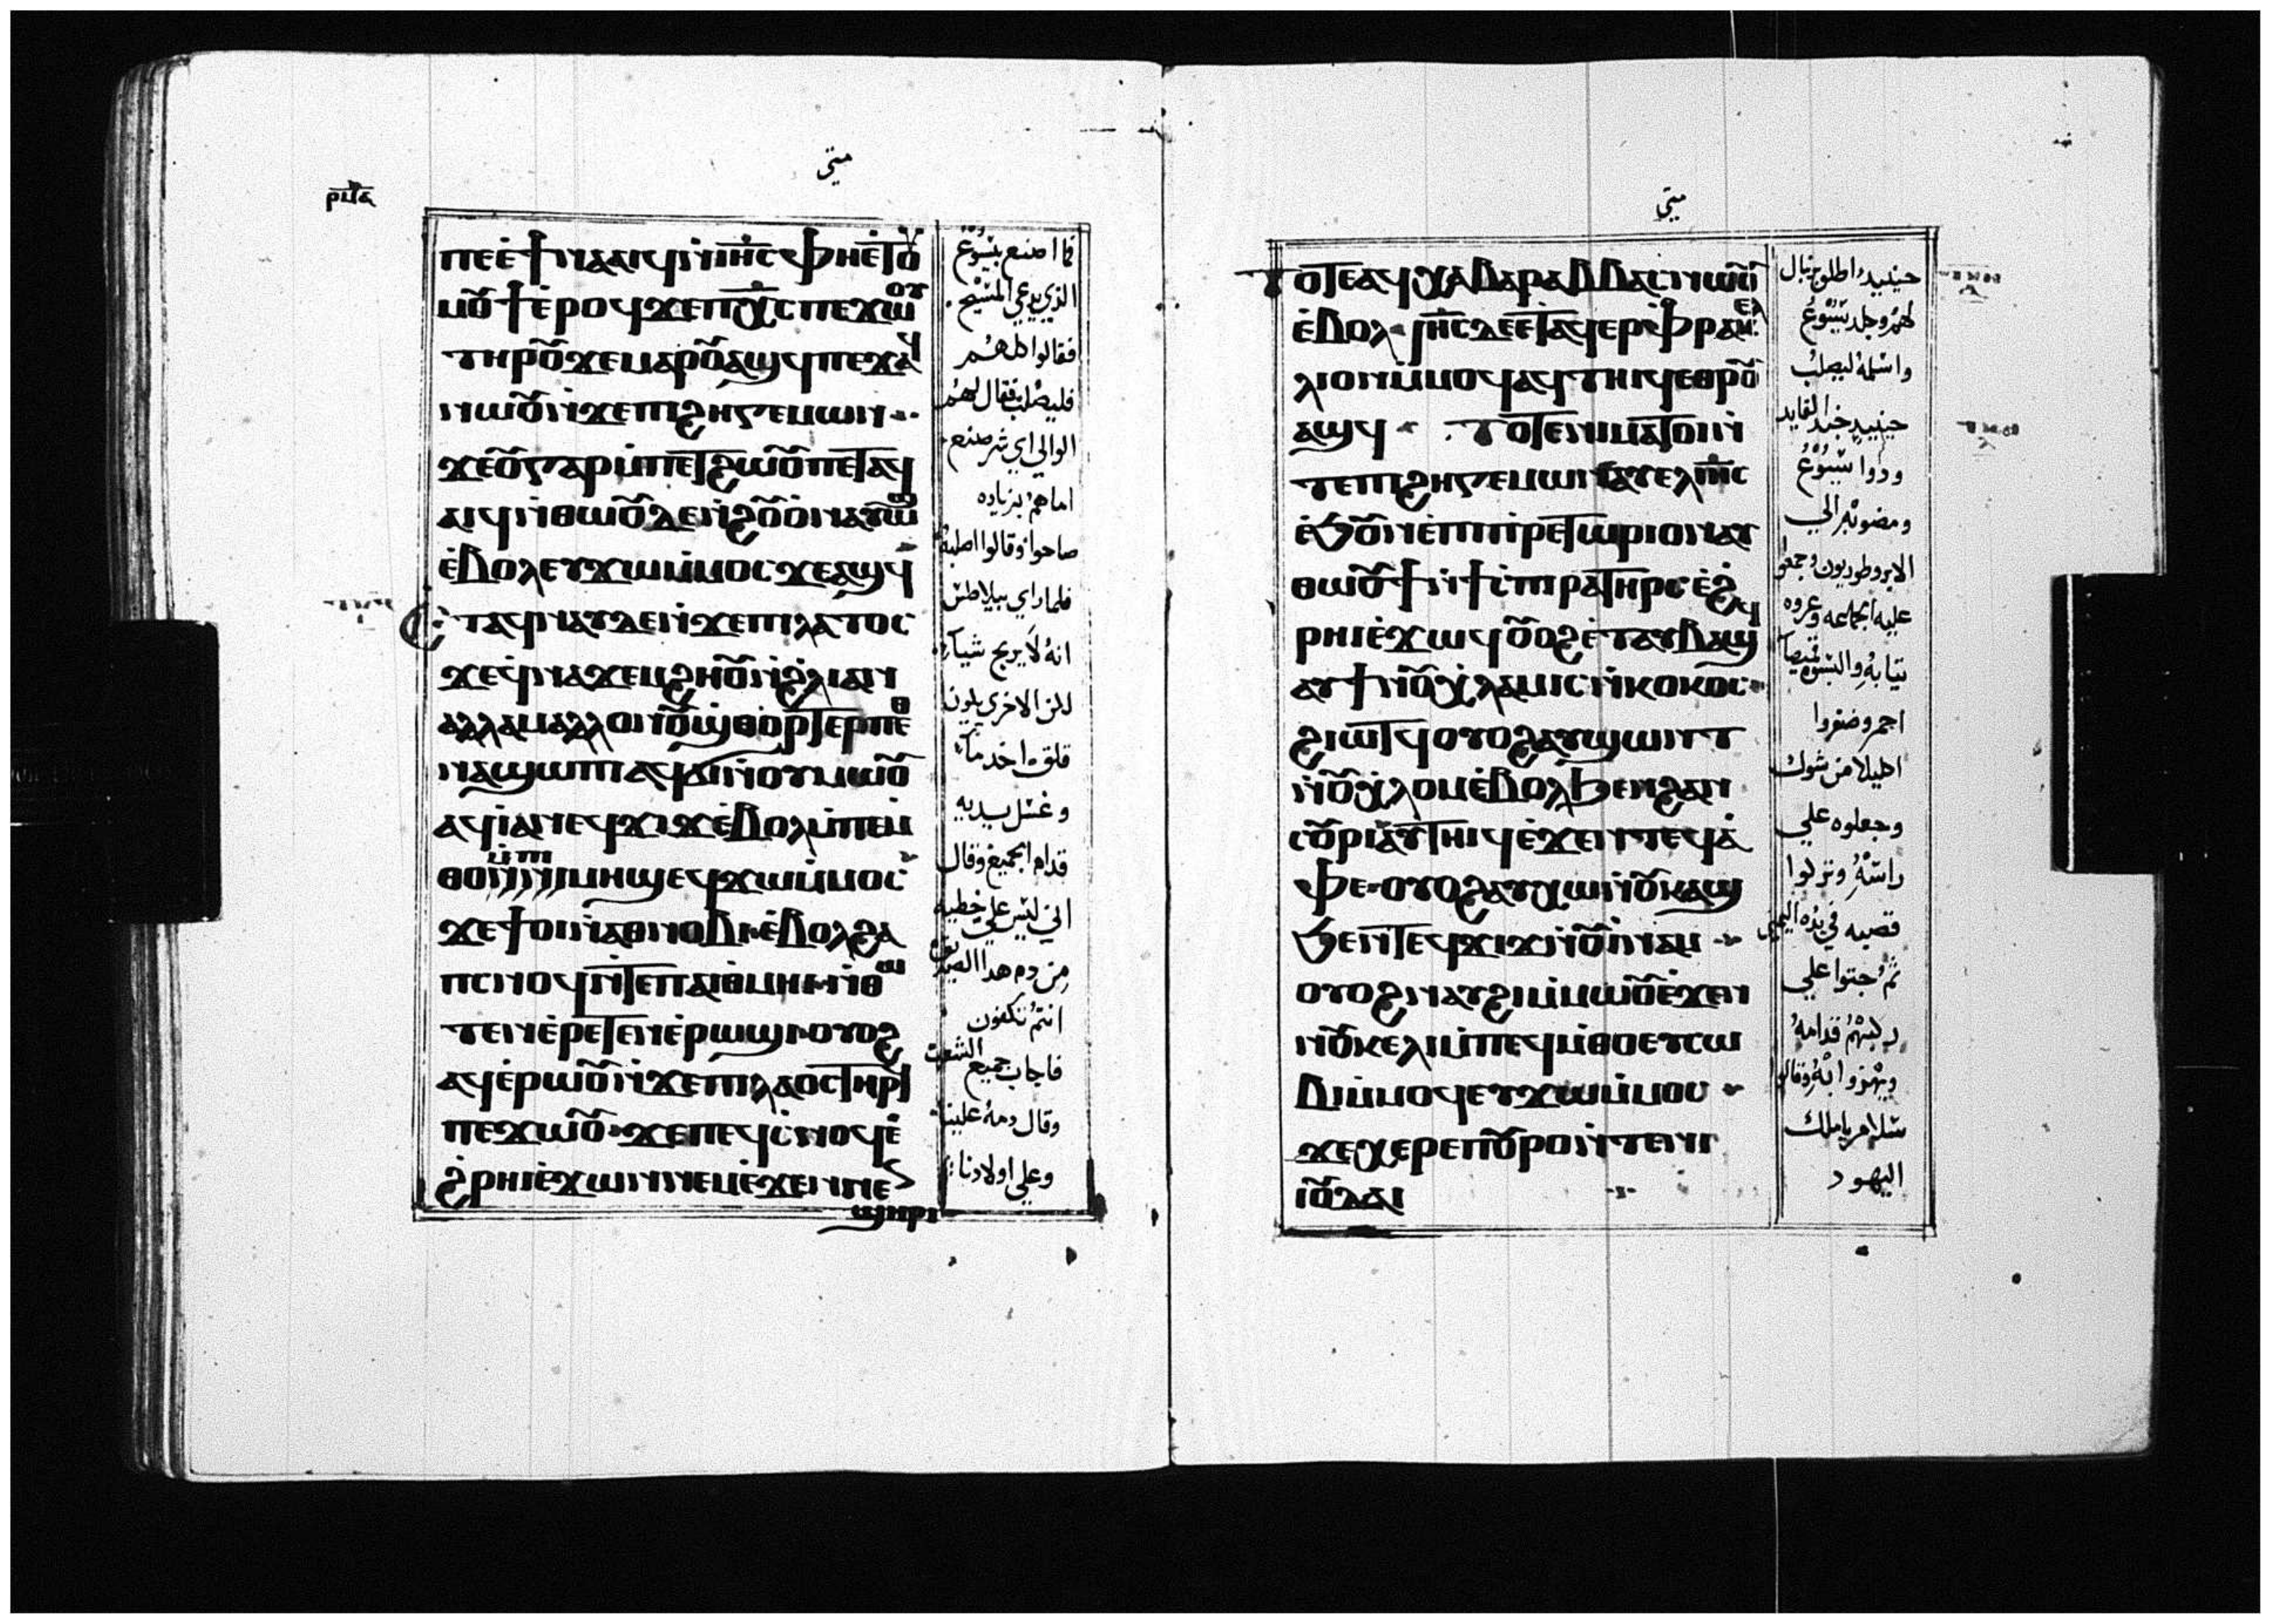 ميتى
ⲡⲉⲉϯⲛⲁⲁⲓϥⲛⲓⲏ̅ⲥ̅ⲫⲏⲉⲧⲟⲩ
ⲙⲟⲩϯⲉⲣⲟϥϫⲉⲡⲭ̅ⲥ̅ⲡⲉϫⲱⲟⲩ
ⲧⲏⲣⲟⲩϫⲉⲙⲁⲣⲟⲩⲁϣϥⲡⲉϫⲁϥ
ⲛⲱⲟⲩⲛ̀ϫⲉⲡⲓϩⲏⲅⲉⲙⲱⲛ
ϫⲉⲟⲩⲅⲁⲣⲙ̀ⲡⲉⲧϩⲱⲟⲩⲡⲉⲧⲁϥ
ⲁⲓϥⲛ̀ⲑⲱⲟⲩⲇⲉⲛ̀ϩⲟⲩⲟ̀ⲛⲁⲩⲱϣ
ⲉ̀ⲃⲟⲗⲉⲩϫⲱⲙ̀ⲙⲟⲥϫⲉⲁϣϥ
ⲉⲧⲁϥⲛⲁⲩⲇⲉⲛ̀ϫⲉⲡⲓⲗⲁⲧⲟⲥ
ϫⲉϥ̀ⲛⲁϫⲉⲙϩⲏⲟⲩⲛ̀ϩ̀ⲗⲓⲁⲛ
ⲁⲗⲗⲁⲙⲁⲗⲗⲟⲛⲟⲩϣ̀ⲑⲟⲣⲧⲉⲣⲡⲉⲑ
ⲛⲁϣⲱⲡⲓⲁϥϭⲓⲛ̀ⲟⲩⲙⲱⲟⲩ
ⲁϥⲓⲁⲛⲉϥϫⲓϫⲉ̀ⲃⲟⲗⲙ̀ⲡⲉⲙ̀
ⲑⲟⲙ̀ⲡⲓⲙⲏϣⲉϥϫⲱⲙ̀ⲙⲟⲥ
ϫⲉϯⲟⲓⲛ̀ⲁⲑⲛⲟⲃⲓⲉ̀ⲃⲟⲗϩⲁ
ⲡⲥⲛⲟϥⲛ̀ⲧⲉⲡⲁⲓⲑ̀ⲙⲏⲓⲛ̀ⲑⲱ
ⲧⲉⲛⲉ̀ⲣⲉⲧⲉⲛⲉ̀ⲣⲱϣⲓⲟⲩⲟϩ
ⲁϥⲉ̀ⲣⲱⲟⲩⲛ̀ϫⲉⲡⲓⲗⲁⲟⲥⲧⲏⲣϥ
ⲡⲉϫⲱⲟⲩϫⲉⲡⲉϥⲥ̀ⲛⲟϥⲉ̀
ϩ̀ⲣⲏⲓⲉ̀ϫⲱⲛⲛⲉⲙⲉ̀ϫⲉⲛⲛⲉⲛ
ϣⲏⲣⲓ
فما اصنع بيسوع
الذي يدعي المسيح
فقالوا كلهم
فليصلب فقال لهم
الوالي اي شر صنع
اما هم بزياده
صاحوا وقالوا اصلبه
فلما راي بيلاطس
انه لا يربح شيا
لكن الاحري يكون
قلق اخد ما
وغسل يديه
قدام الجميع وقال
اني ليس علي خطيه
من دم هدا الصديق
انتم تكفون
فاجاب جميع الشعب
وقال دمه علينا
وعلي اولادنا
ميتي
ⲧⲟⲧⲉⲁϥⲭⲁⲃⲁⲣⲁⲃⲃⲁⲥⲛⲱⲟⲩ
ⲉ̀ⲃⲟⲗⲓⲏ̅ⲥ̅ⲇⲉⲉⲧⲁϥⲉⲣⲫⲣⲁⲅⲉⲗ
ⲗⲓⲟⲛⲙ̀ⲙⲟϥⲁϥⲧⲏⲓϥⲉⲑⲣⲟⲩ
ⲁϣϥ ⲧⲟⲧⲉⲛⲓⲙⲁⲧⲟⲓⲛ̀
ⲧⲉⲡⲓϩⲏⲅⲉⲙⲱⲛⲁⲩⲉⲗⲓⲏ̅ⲥ̅
ⲉ̀ϧⲟⲩⲛⲉ̀ⲡⲓⲡ̀ⲣⲉⲧⲱⲣⲓⲟⲛⲁⲩ
ⲑⲱⲟⲩϯⲛ̀ϯⲥ̀ⲡⲓⲣⲁⲧⲏⲣⲥⲉ̀ϩ
ⲣⲏⲓⲉ̀ϫⲱϥⲟⲩⲟϩⲉ̀ⲧⲁⲩⲃⲁϣϥ
ⲁⲩϯⲛ̀ⲟⲩⲭ̀ⲗⲁⲙⲓⲥⲛ̀ⲕⲟⲕⲟⲥ
ϩⲓⲱⲧϥⲟⲩⲟϩⲁⲩϣⲱⲛⲧ
ⲛ̀ⲟⲩⲭ̀ⲗⲟⲙⲉ̀ⲃⲟⲗϧⲉⲛϩⲁⲛ
ⲥⲟⲩⲣⲓⲁⲩⲧⲏⲓϥⲉ̀ϫⲉⲛⲧⲉϥⲁ̀
ⲫⲉⲟⲩⲟϩⲁⲩⲭⲱⲛ̀ⲟⲩⲕⲁϣ
ϧⲉⲛⲧⲉϥϫⲓϫⲛ̀ⲟⲩⲓⲛⲁⲙ
ⲟⲩⲟϩⲛⲁⲩϩⲓⲙ̀ⲙⲱⲟⲩⲉ̀ϫⲉⲛ
ⲛⲟⲩⲕⲉⲗⲓⲙ̀ⲡⲉϥⲙ̀ⲑⲟⲉⲩⲥⲱ
ⲃⲓⲙ̀ⲙⲟϥⲉⲩϫⲱⲙ̀ⲙⲟⲥ
ϫⲉⲭⲉⲣⲉⲡⲟⲩⲣⲟⲛ̀ⲧⲉⲛⲓ
ⲓⲟⲩⲇⲁⲓ
حينيد اطلق برنبال
لهم وجلد يسوع
واسلمه ليصلب
حينيد جند القايد
ودوا يسوع
ومضوا به الي
الابروطوريون وجمعوا
عليه الجماعه وعروه
تيابه والبسوه قميصا
احمر وضفروا
اكليلا من شوك
وجعلوه علي
راسه ونزلوا
قصبه في يده اليمين
ثم جتوا علي
ركبهم قدامه
ويهزوا به وقالوا
سلام يا ملك
اليهود